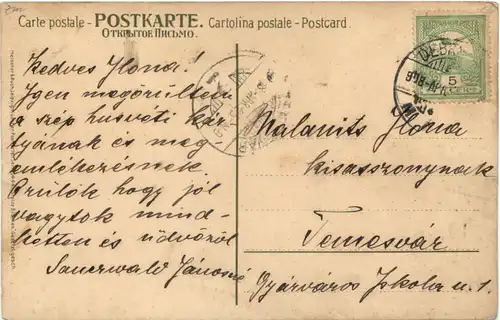 Carte postale - POSTKARTE. Cartolina postale - Postcard
ОТКРЫТОЕ ПИСЬМО.
Kedves Ilona!
Igen megörültem
a szép husvéti kár-
tyának és meg
emlékezésnek.
Örülök hogy jól
vagytok mind-
ketten és üdvözöl
Sauerwald Jánosné
Malanits Ilona
kisasszonynak
Temesvár
Gyárváros Iskola u. 1.
5